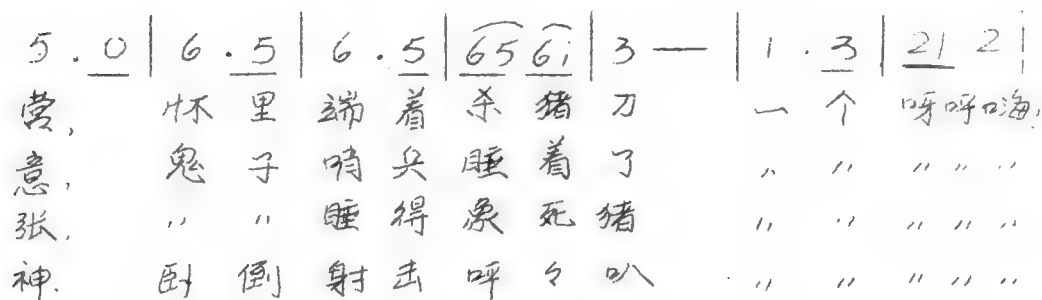 5 . 0 | 6 . 5 | 6 . 5 | 65 6i | 3 — | 1 . 3 | 21 2 |
营, 怀 里 端 着 杀 猪 刀 一 个 呀 呼 嗨,
意, 鬼 子 哨 兵 睡 着 了 〃 〃 〃 〃 〃
张, 〃 〃 睡 得 象 死 猪 〃 〃 〃 〃 〃
神. 卧 倒 射 击 呼 々 叭 〃 〃 〃 〃 〃